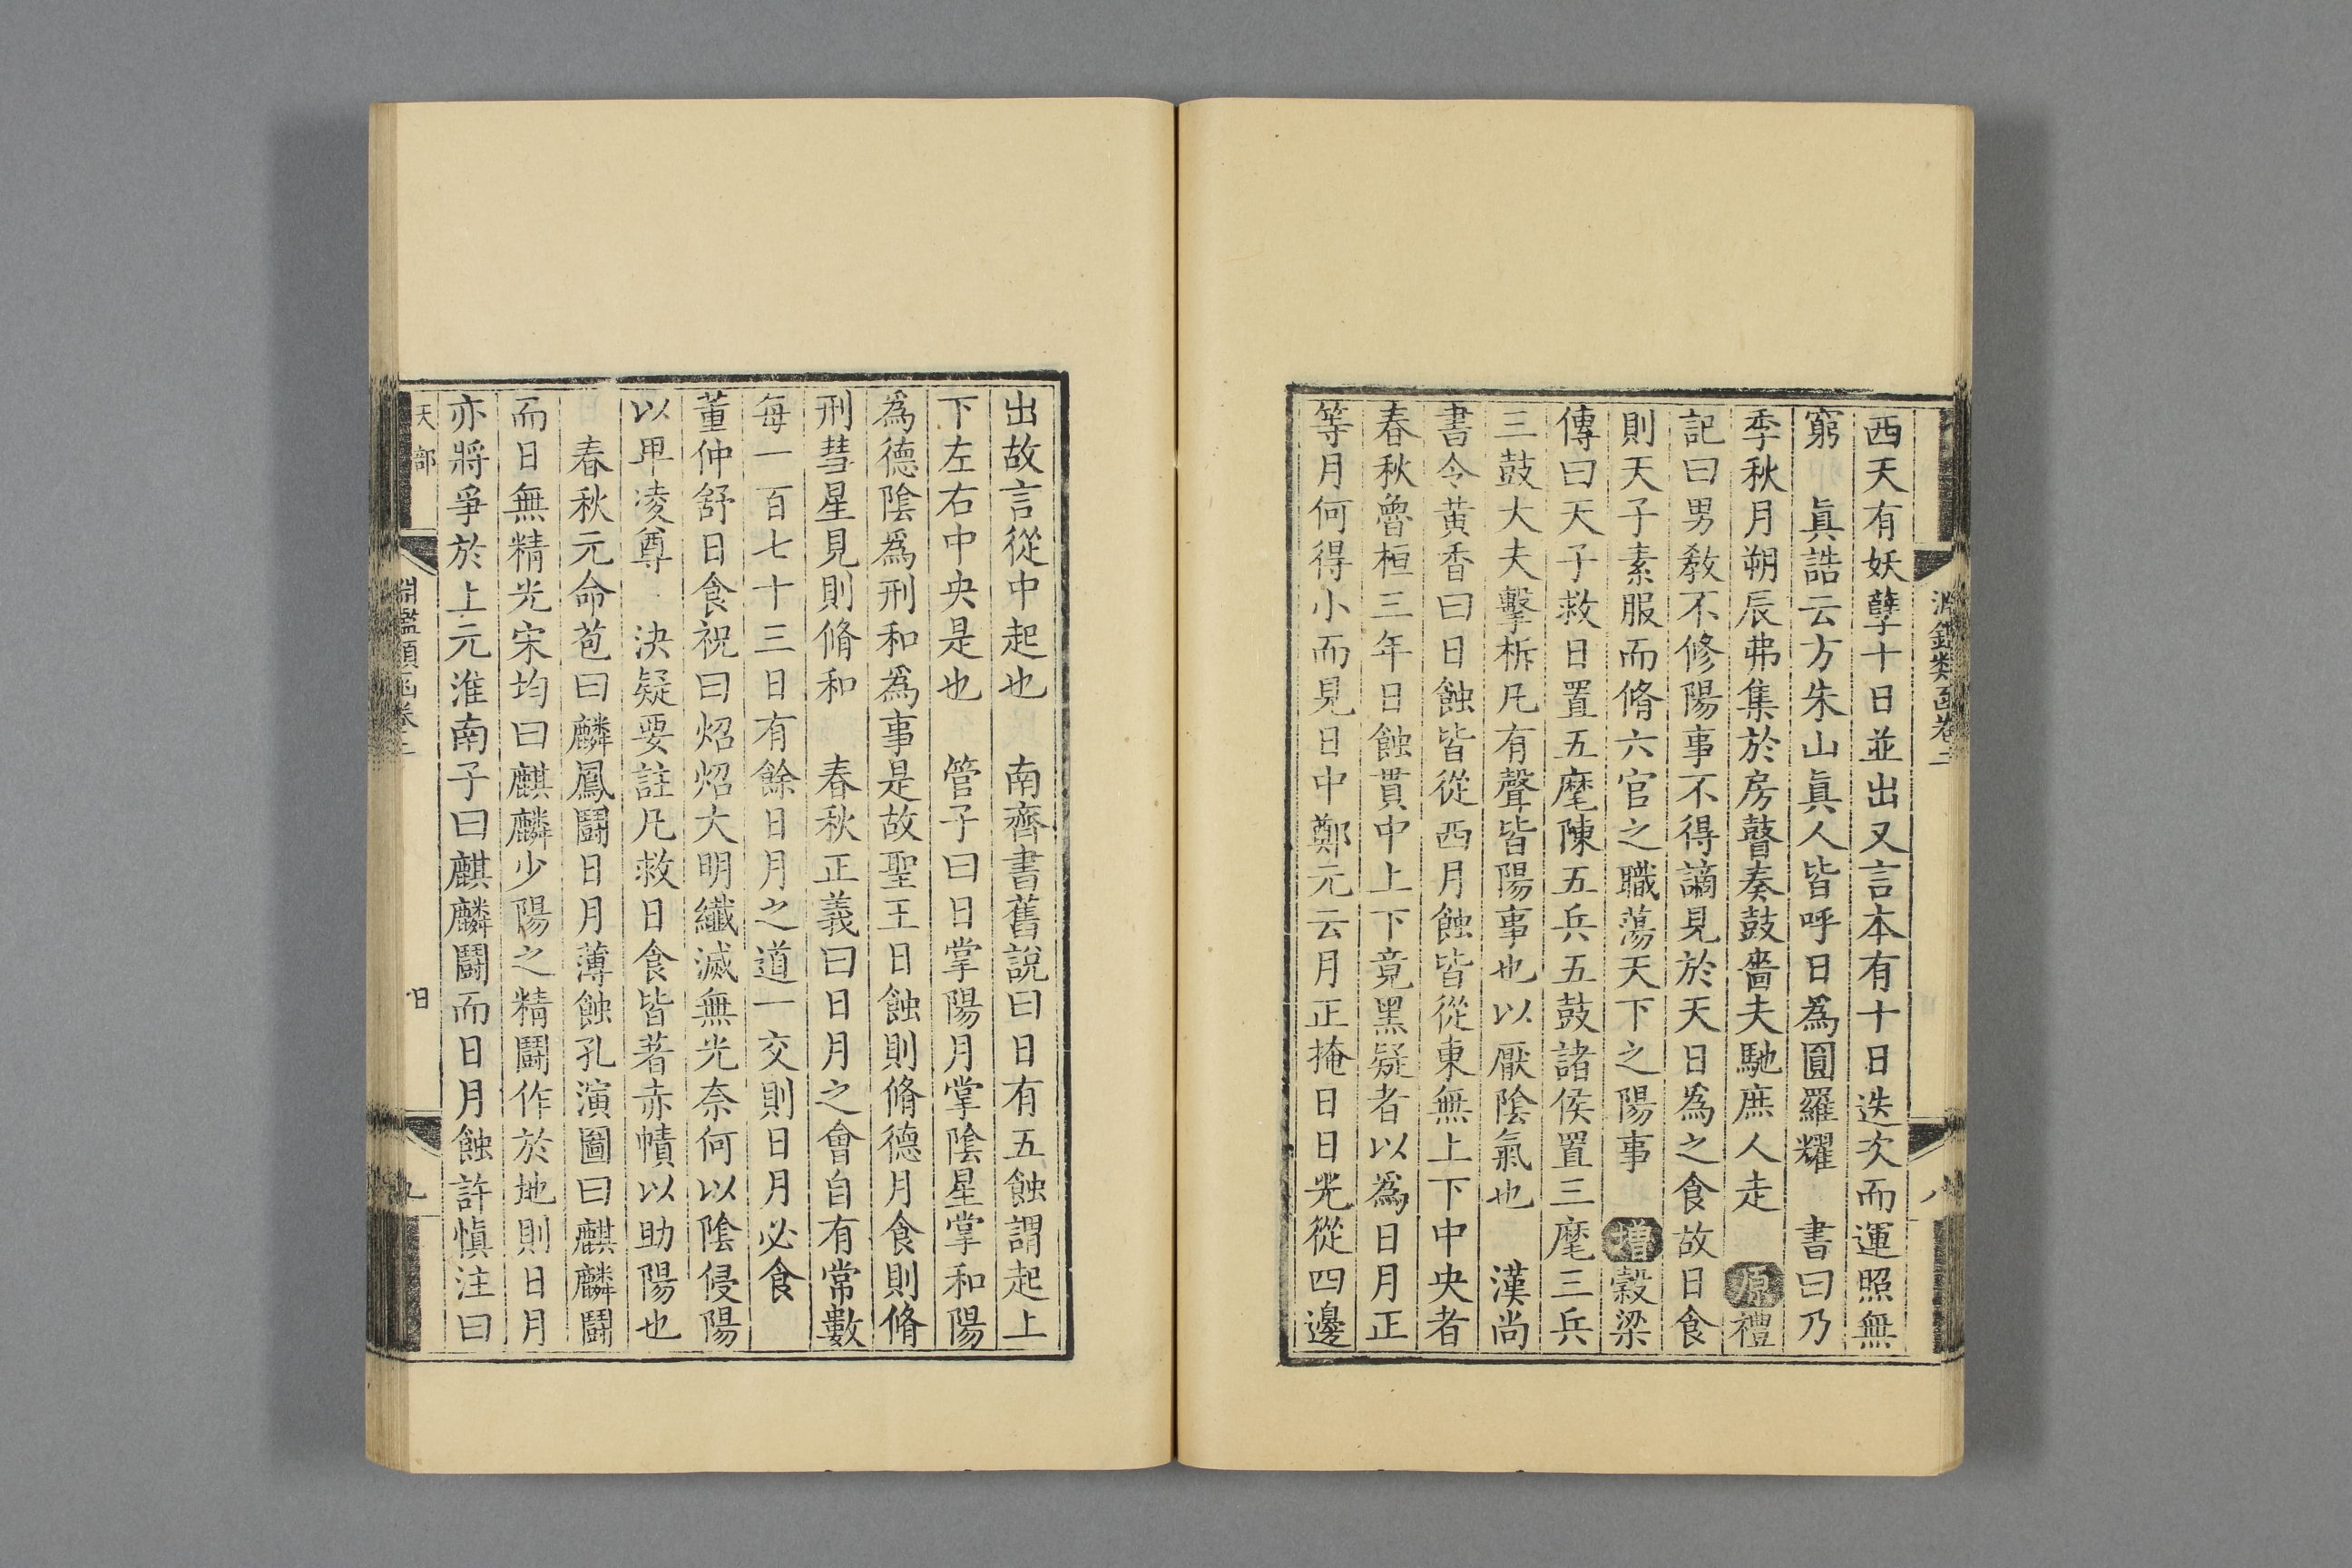 西天有妖孽十日並出又言本有十日迭次而運照無
窮　眞誥云方朱山眞人皆呼日爲圓羅耀　書曰乃
季秋月朔辰弗集於房瞽奏鼓嗇夫馳庶人走　原禮
記曰男敎不修陽事不得謫見於天日爲之食故日食
則天子素服而脩六官之職蕩天下之陽事　增穀梁
傳曰天子救日置五麾陳五兵五鼓諸侯置三麾三兵
三鼓大夫擊柝凡有聲皆陽事也以厭陰氣也　漢尚
書令黃香曰日蝕皆從西月蝕皆從東無上下中央者
春秋魯桓三年日蝕貫中上下竟黑疑者以爲日月正
等月何得小而見日中鄭元云月正掩日日光從四邊
淵鑑類函卷二
八
出故言從中起也　南齊書舊說曰日有五蝕謂起上
下左右中央是也　管子曰日掌陽月掌陰星掌和陽
爲德陰爲刑和爲事是故聖王日蝕則脩德月食則脩
刑彗星見則脩和　春秋正義曰日月之會自有常數
每一百七十三日有餘日月之道一交則日月必食
董仲舒日食祝曰炤炤大明纖滅無光奈何以陰侵陽
以卑凌尊　決疑要註凡救日食皆著赤幘以助陽也
春秋元命苞曰麟鳳鬭日月薄蝕孔演圖曰麒麟鬭
而日無精光宋均曰麒麟少陽之精鬭作於地則日月
亦將爭於上元淮南子曰麒麟鬭而日月蝕許愼注曰
天部
淵鑑類函卷二
日
九